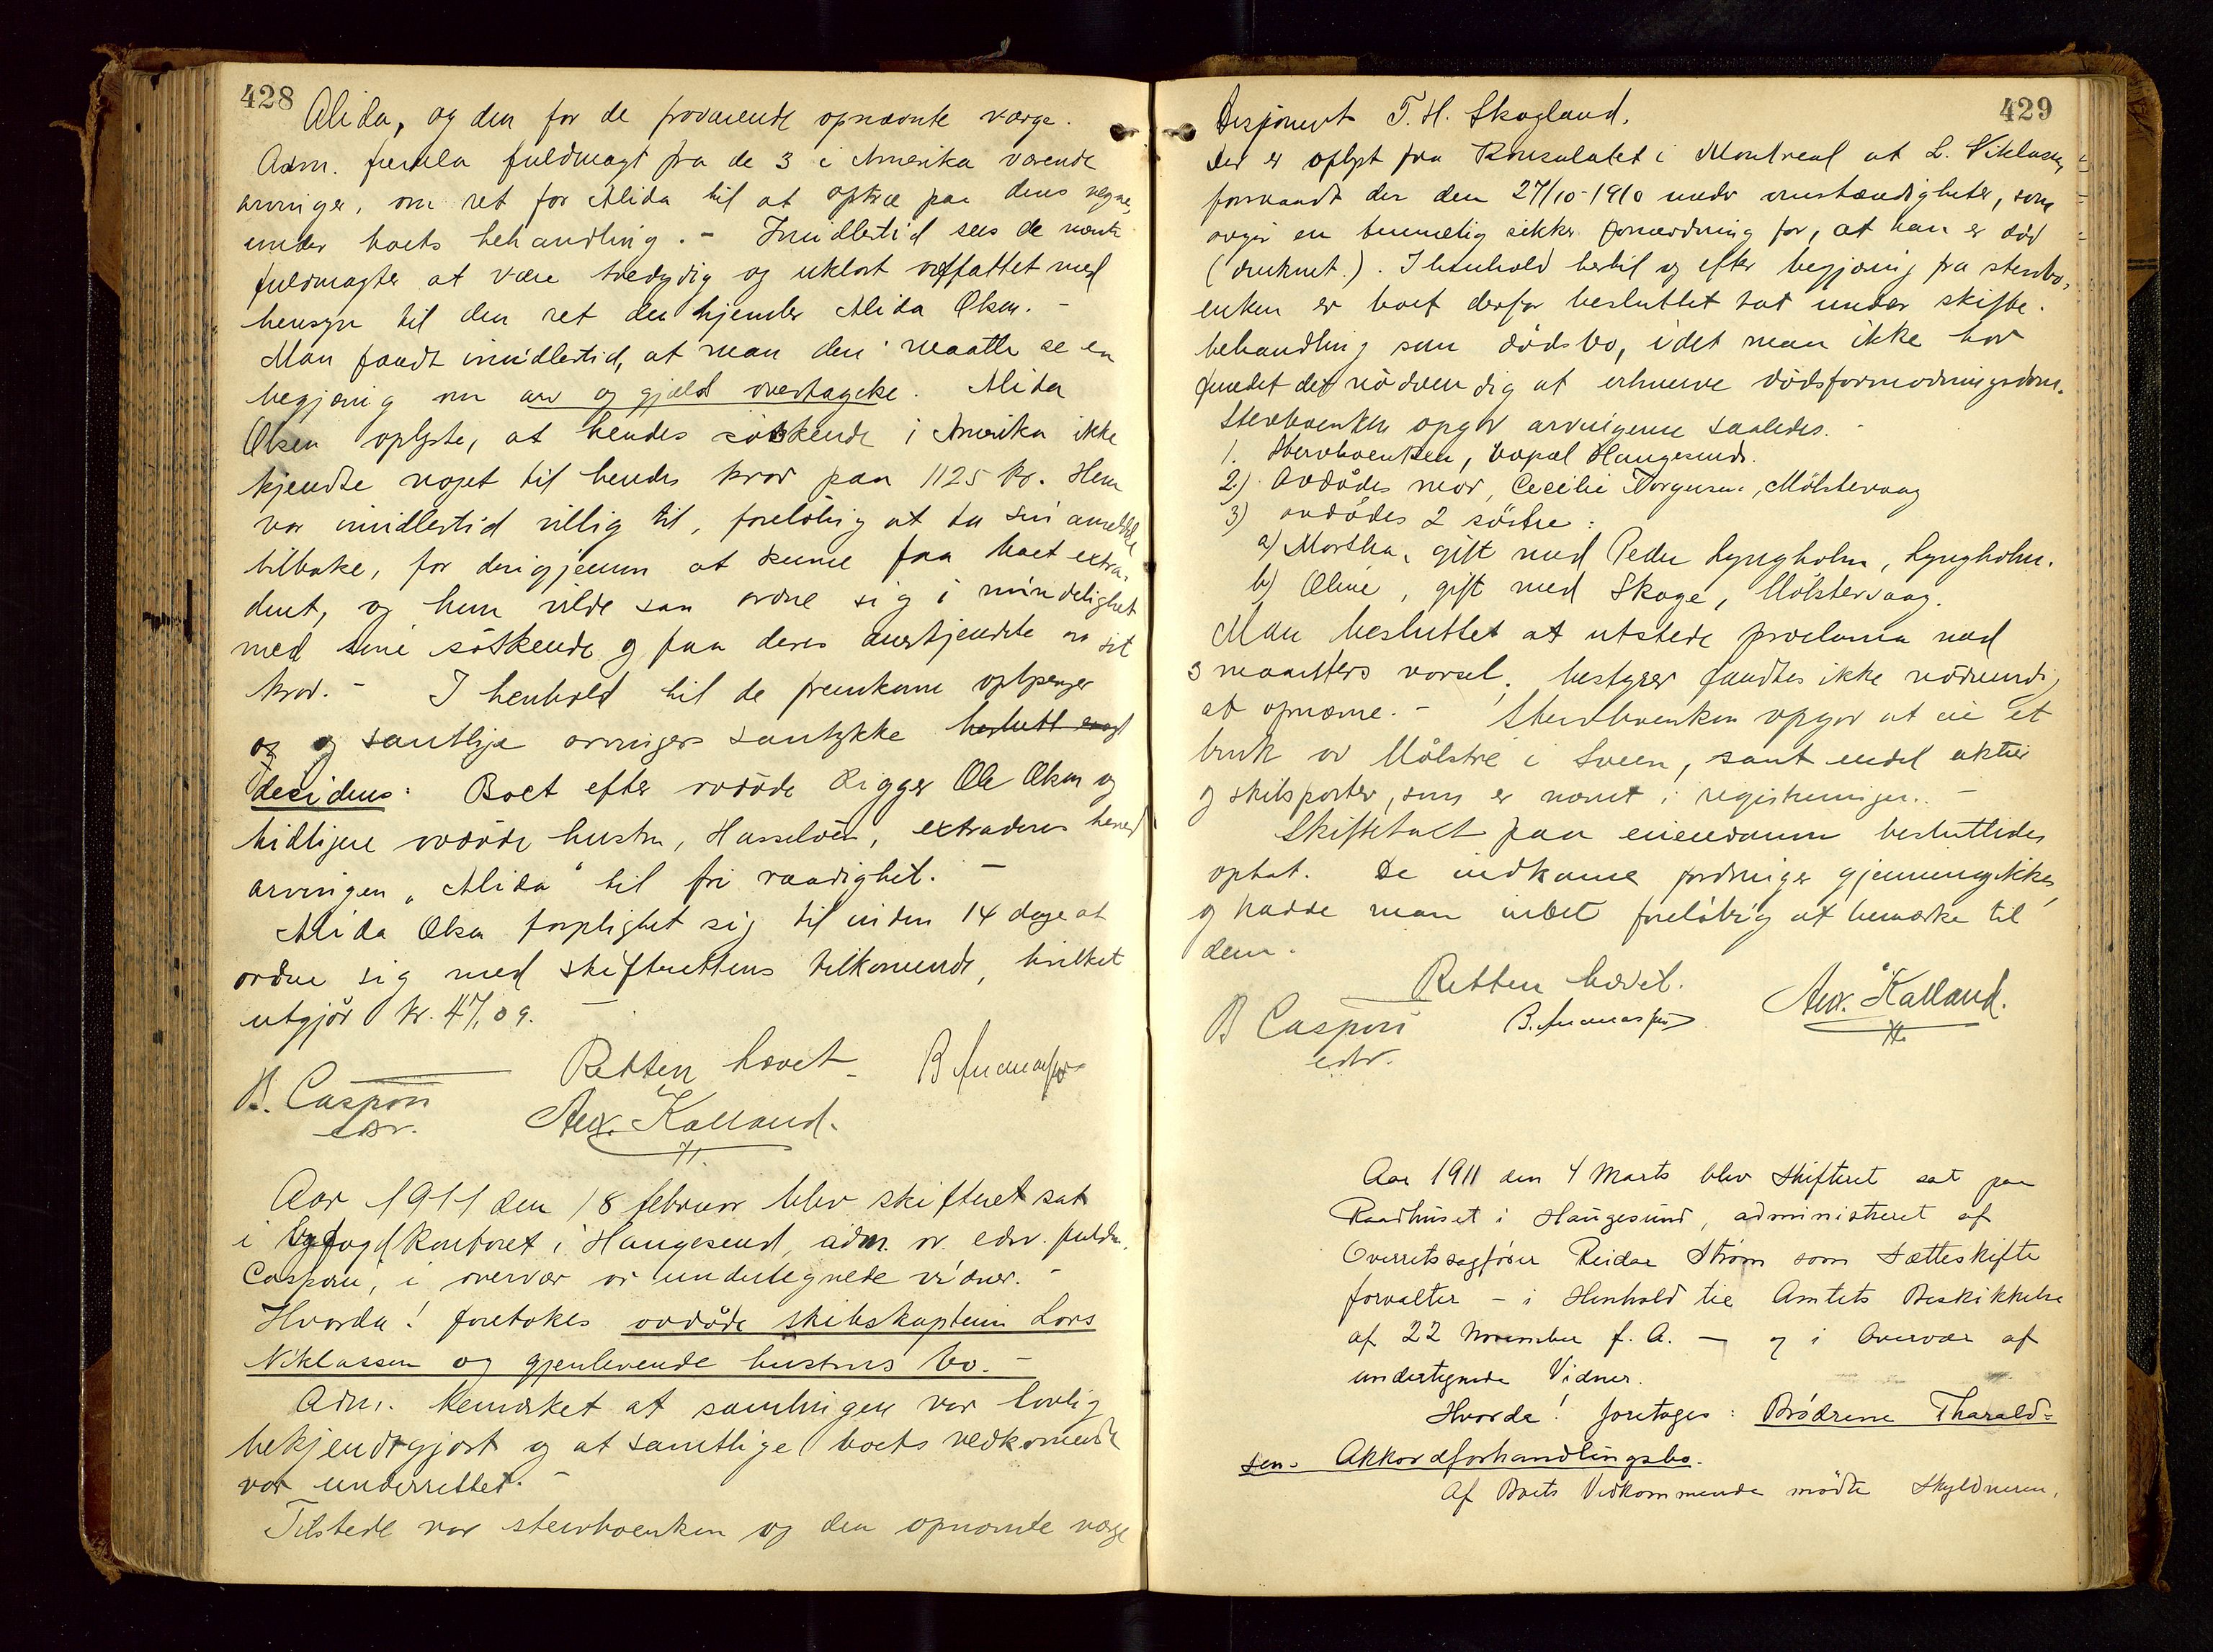 428
Alida, og den for de fraværende opnævnte værge.
Adm. fremla fuldmagt fra de 3 i Amerika værende
arvinger, om ret for Alida til at optræ paa deres vegne,
under boets behandling. - Imidlertid sees de nævnte
fuldmagter at være tvedydig og uklart avfattet med
hensyn til den ret der hjemler Alida Olsen. -
Man fandt imidlertid, at man deri maatte se en
begjæring om arv og gjælds overtagelse. Alida
Olsen oplyste, at hendes søskende i Amerika ikke
kjendte noget til hendes krav paa 1125 kr. Hun
var imidlertid villig til, foreløbig at ta sin anmeldelse
tilbake, for derigjennem at kunne faa boet extra-
dert, og hun vilde saa ordne sig i mindelighet
med sine søskende og faa deres anerkjendelse av sit
krav. - I henhold til de fremkomne oplysninger
og og samtlige arvingers samtykke
decideres: Boet efter avdøde Rigger Ole Olsen og
tidligere avdøde hustru, Hasseløen, extraderes herved
arvingen "Alida" til fri raadighet. -
Alida Olsen forpligtet sig til inden 14 dage at
ordne sig med skifterettens tilkommende, hvilket
utgjør kr. 47,09. -
Retten hævet.
B. Caspari
edsv.
Alex. Kalland.
Aar 1911 den 18 februar blev skifteret sat
i Byfogdkontoret i Haugesund, adm. av edsv. fuldm.
Caspari, i overvær av undertegnede vidner. -
Hvorda! foretokes avdøde skibskaptein Lars
Niklassen og gjenlevende hustrus bo. -
Adm. bemerket at samlingen var lovlig
bekjendtgjort og at samtlige boets vedkommende
var underrettet. -
Tilstede var stervboenken og den opnævnte værge
429
Disponent T. H. Skogland.
Det er oplyst fra Konsulatet i Montreal at L. Niklassen
forsvandt der den 27/10-1910 under omstændigheter, som
avgir en temmelig sikker formodning for, at han er død
(druknet.). I henhold hertil og efter begjæring fra stervbo-
enken er boet derfor besluttet tat under skifte-
behandling som dødsbo, idet man ikke har
fundet det nødvendig at erhverve dødsformodningsdom.
Stervboenken opgav arvingerne saaledes. -
1. Stervboenken, bopæl Haugesund.
2.) Avdødes mor, Cecilie Torgersen, Mølstervaag
3) avdødes 2 søstre:
a) Martha, gift med Peder Lyngholm, Lyngholm.
b) Oline, gift med Skoge, Mølstervaag.
Man besluttet at utstede proclama med
3 maaneders varsel. bestyrer fandtes ikke nødvendig
at opnævne. - Stervboenken opgav at eie et
bruk av Mølstre i Sveen, samt endel aktier
og skibsparter, som er nævnt i registreringen. -
Skiftetakst paa eiendommen besluttedes
optat. De indkomne fordringer gjennemgikkes,
og hadde man intet foreløbig at bemærke til
dem.
Retten hævet.
B Caspari
edsv.
Alex. Kalland.
Aar 1911 den 4 Marts blev Skifteret sat paa
Raadhuset i Haugesund, administreret af
Overretssagfører Reidar Strøm som Sætteskifte
forvalter - i Henhold til Amtets Beskikkelse
af 22 November f. A. - og i Overvær af
undertegnede Vidner.
Hvorda! foretages: Brødrene Tharald-
sen. Akkordforhandlingsbo.
Af Boets Vedkommende mødte Skyldneren,